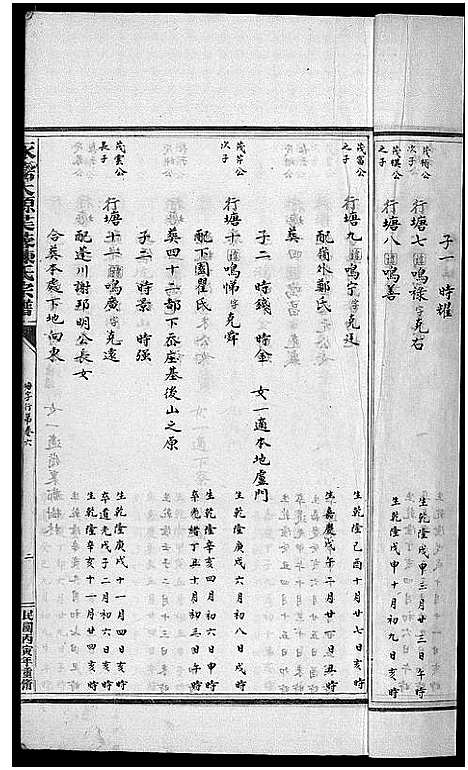 子一 時耀
茂梅公
次子 行塘七 鳴祿字克右 生乾隆戊申三月廿三日午時
茂模公
之子 行塘八 鳴善 生乾隆戊申十月初九日亥時
茂富公
之子 行塘九 鳴宇字克廷 生乾隆己酉十月廿七日亥時
配嶺外鄭氏 生嘉慶戊午二月廿日丑時
葬四
子二 時錢 時金 女一適本地盧門
茂芹公
次子 行塘十 鳴悌字克舜 生乾隆庚戌六月初八日戌時
配下園瞿氏 生乾隆辛亥四月初六日申時
卒光緒丁丑十月初三日午時
葬四十二都下岙座基後山之原
子二 時景 時强
茂雲公
長子 行塘十一 鳴廣字克遠 生乾隆庚戌十一月四日亥時
卒道光戊子二月初六日亥時
配逢川謝邳明公長女 生乾隆辛亥十一月廿四亥時
合葬本處下地向東
宗譜
行第卷六
二
民國丙寅年重脩